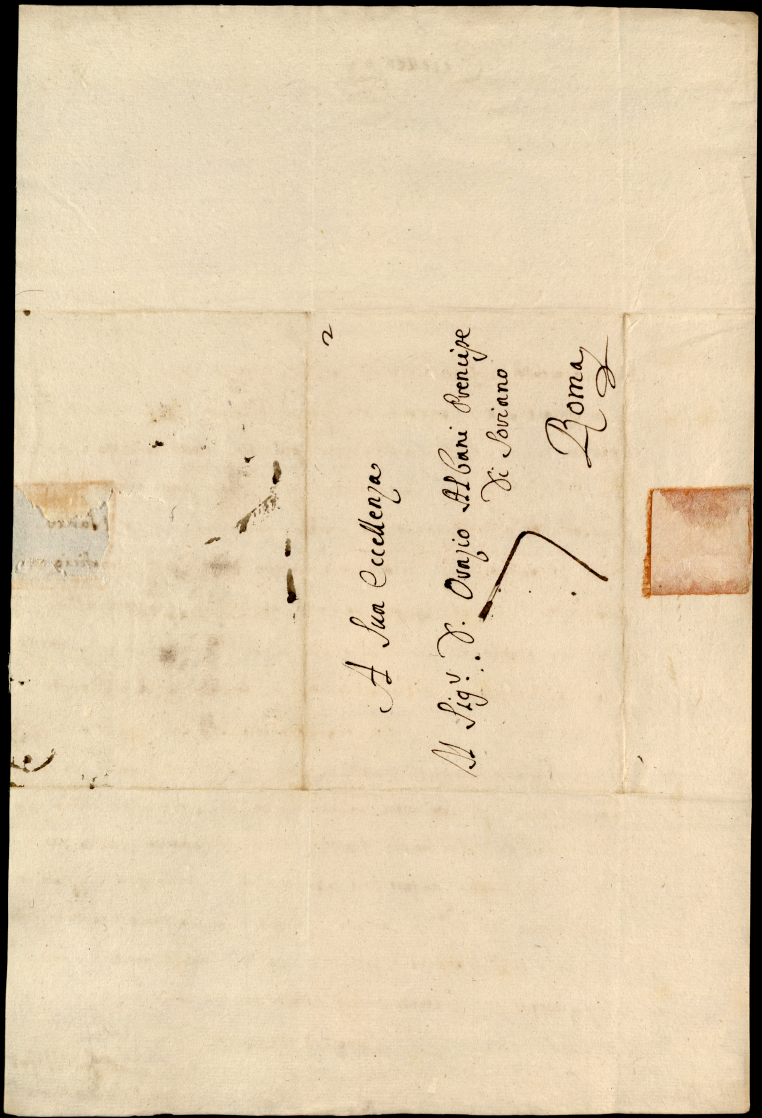 2
A Sua Eccellenza
Al Sig.r D. Orazio Albani Prencipe
Di Soriano
Roma